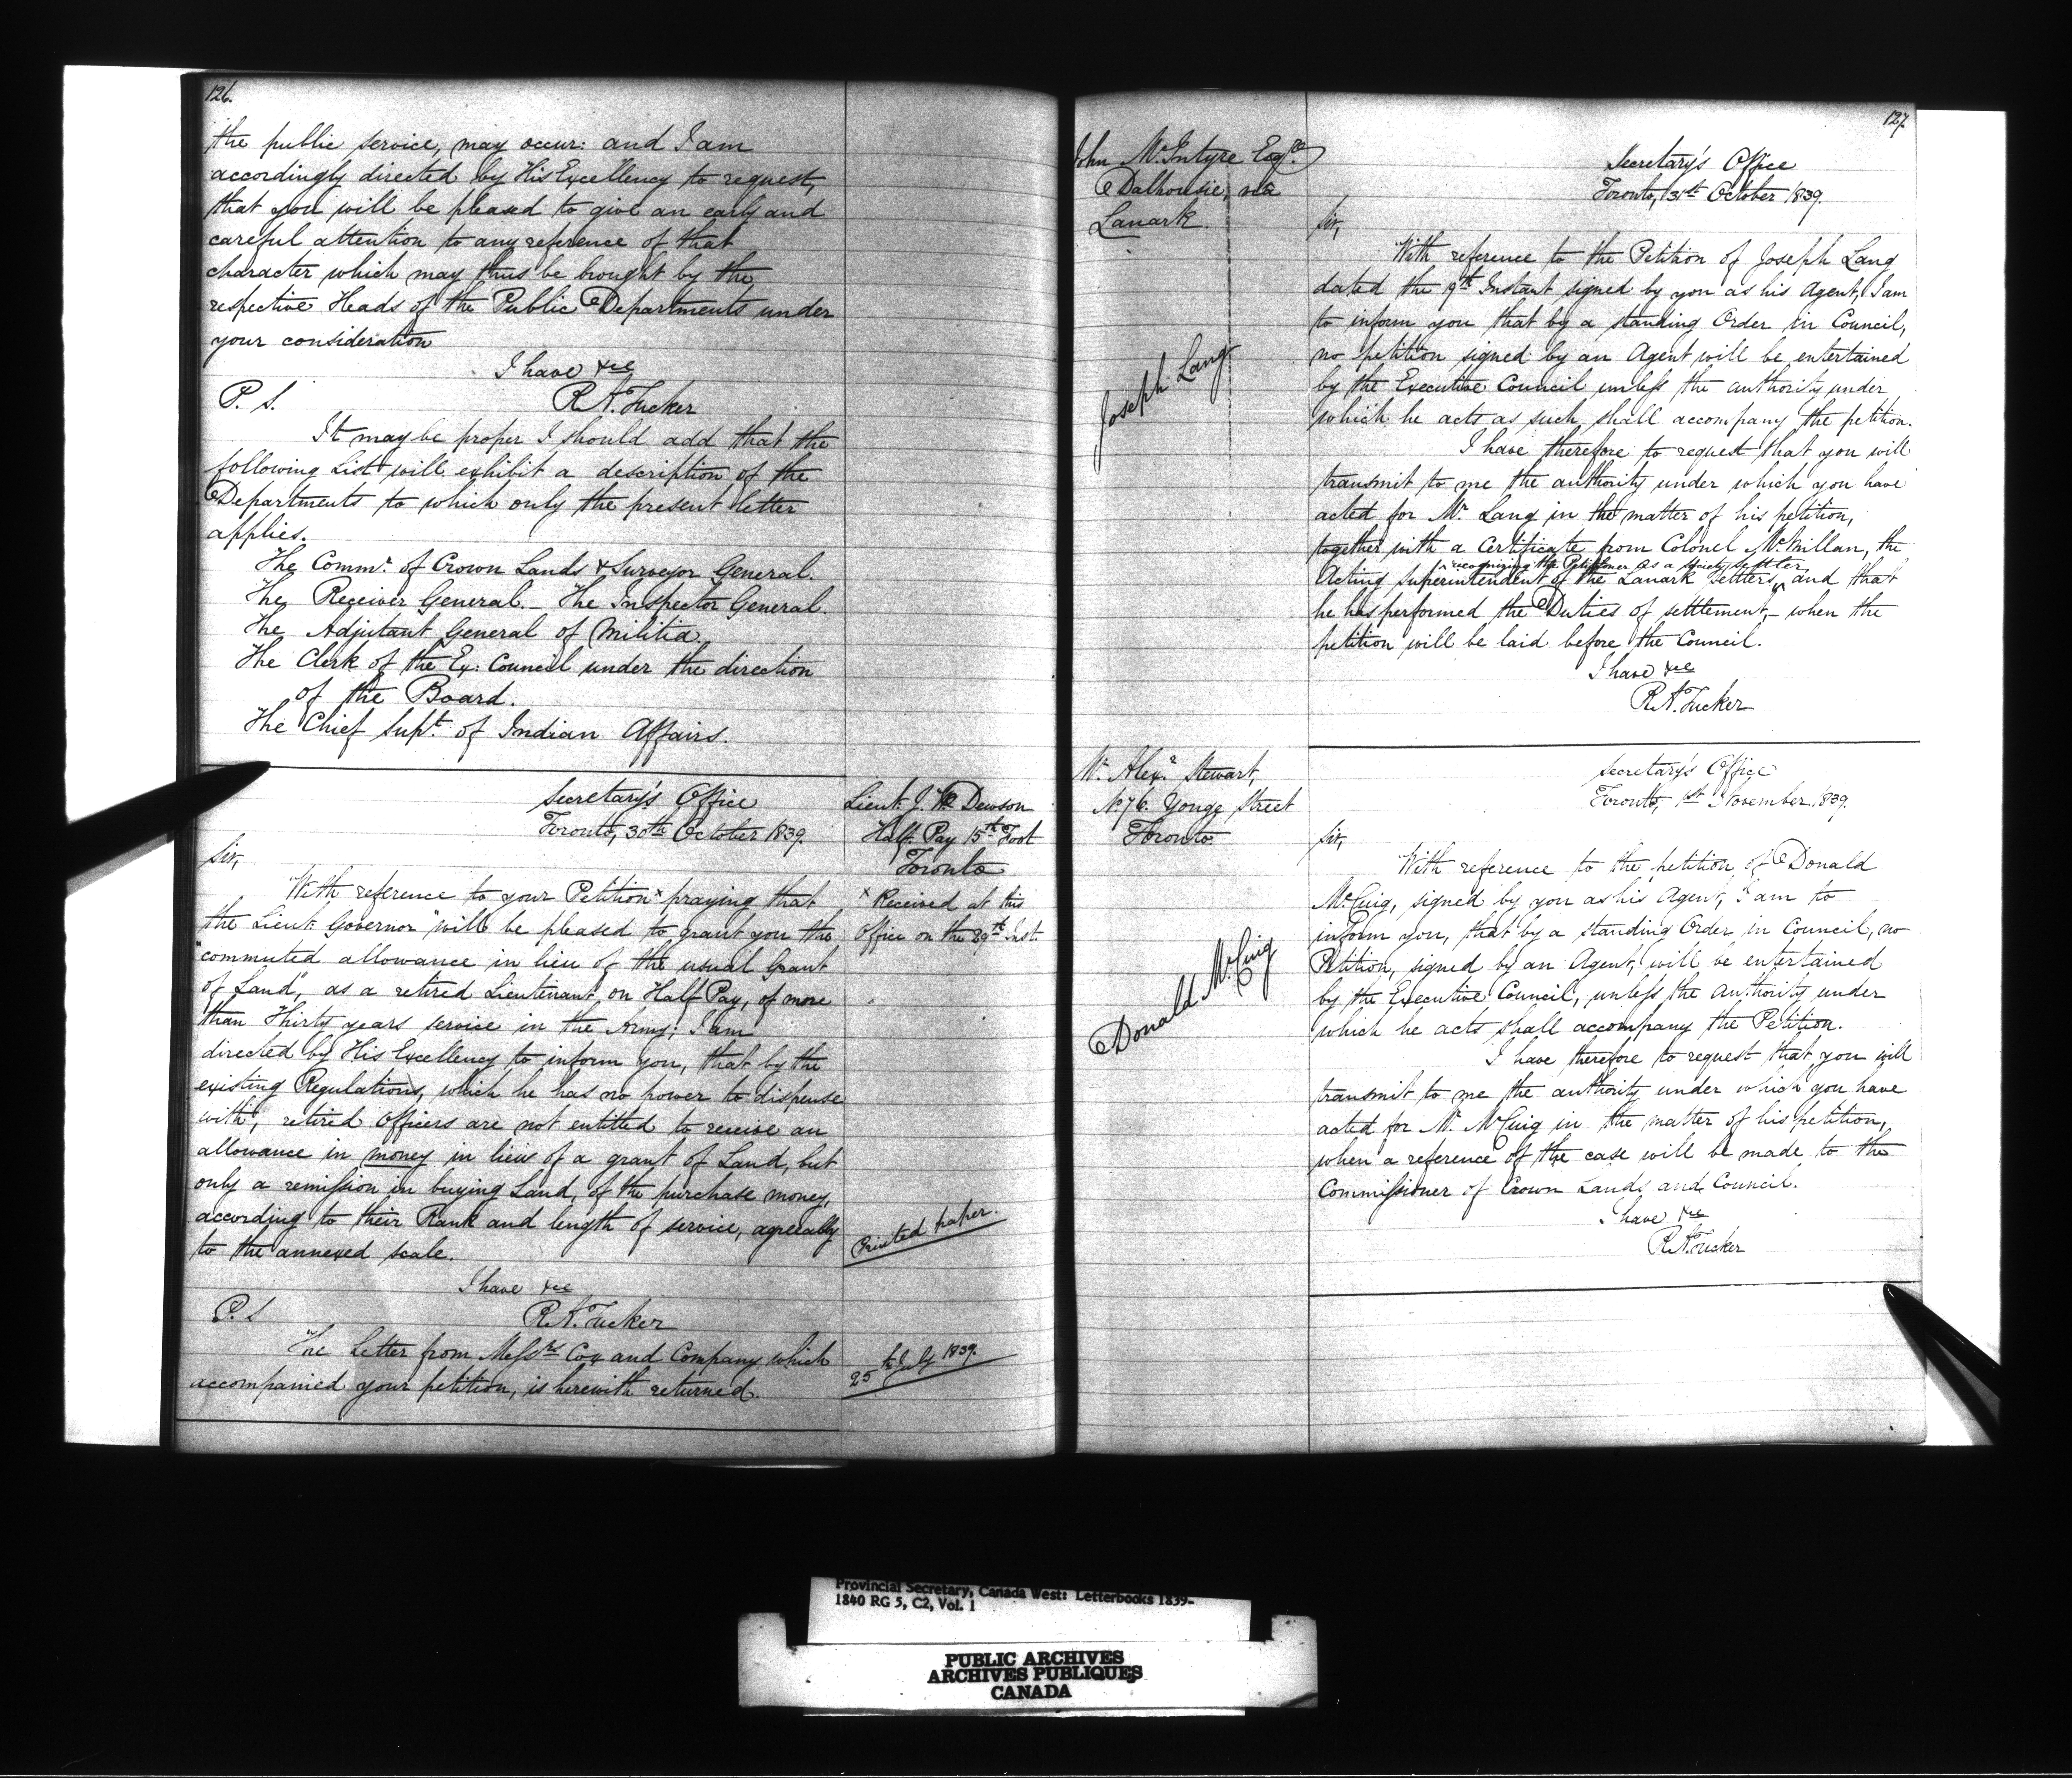 126.
the public service, may occur: and I am
accordingly directed by His Excellency to request,
that you will be pleased to give an early and
careful attention to any reference of that
character which may thus be brought by the
respective Heads of the Public Departments under
your consideration
I have &ce
P. S. R A. Tucker
It may be proper I should add that the
following List will exhibit a description of the
Departments to which only the present letter
applies.
The Commr. of Crown Lands & Surveyor General.
The Receiver General. – The Inspector General.
The Adjutant General of Militia.
The Clerk of the Ex: Council under the direction
of the Board.
The Chief Supt. of Indian Affairs.
Secretary's Office
Toronto, 30th October 1839.
Lieut. J. W. Dewson
Half Pay 15th Foot
Toronto
Sir,
With reference to your Petition x praying that
the Lieut. Governor "will be pleased to grant you the
"commuted allowance in lieu of the usual Grant
of Land", as a retired Lieutenant on Half Pay, of more
than Thirty years service in the Army; I am
directed by His Excellency to inform you, that by the
existing Regulations, which he has no power to dispense
with, retired Officers are not entitled to receive an
allowance in money in lieu of a grant of Land, but
only a remission in buying Land, of the purchase money,
according to their Rank and length of service, agreeably
to the annexed scale.
x Received at this
Office on the 29th Inst.
Printed paper.
I have &ce
P. S R A. Tucker
The Letter from Messrs Cox and Company which
accompanied your petition, is herewith returned.
25th July 1839.
127.
John McIntyre Esqre
Dalhousie, via
Lanark.
Secretary's Office
Toronto, 31st October 1839.
Sir,
With reference to the Petition of Joseph Lang
dated the 9th Instant signed by you as his Agent, I am
to inform you that by a standing Order in Council,
no petition signed by an Agent will be entertained
by the Executive Council unless the authority under
which he acts as such shall accompany the petition.
Joseph Lang
I have therefore to request that you will
transmit to me the authority under which you have
acted for Mr. Lang in the matter of his petition,
together with a Certificate from Colonel McMillan, the
recognizing the Petitioner as a society settler
Acting Superintendent of the Lanark Settlers, and that
he has performed the Duties of settlement, – when the
petition will be laid before the Council.
I have &ce
R A. Tucker
Mr. Alexr. Stewart,
No 76. Yonge Street
Toronto.
Secretary's Office
Toronto, 1st November 1839.
Sir,
With reference to the petition of Donald
McCuig, signed by you as his Agent, I am to
inform you, that by a standing Order in Council, no
Petition, signed by an Agent, will be entertained
by the Executive Council, unless the authority under
which he acts shall accompany the Petition.
Donald McCuig
I have therefore to request that you will
transmit to me the authority under which you have
acted for Mr. McCuig in the matter of his petition,
when a reference of the case will be made to the
Commissioner of Crown Lands and Council.
I have &ce
R A. Tucker
Provincial Secretary, Canada West: Letterbooks 1839-
1840 RG 5, C2, Vol. 1
PUBLIC ARCHIVES
ARCHIVES PUBLIQUES
CANADA